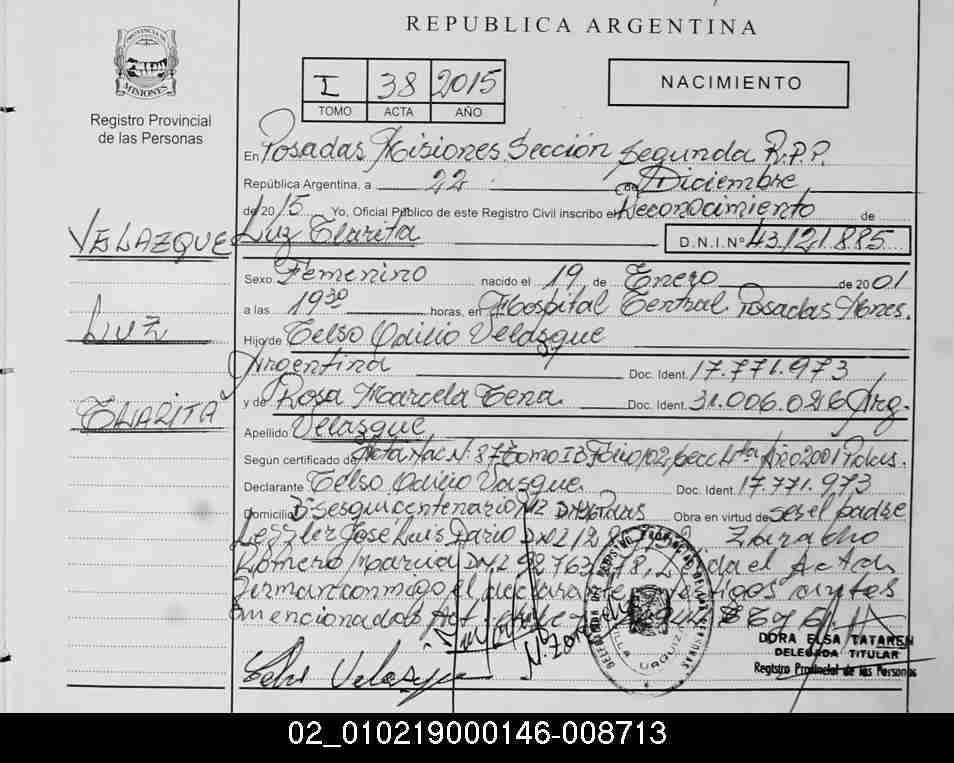 REPUBLICA ARGENTINA
PROVINCIA DE
MISIONES
Registro Provincial
de las Personas
I 38 2015
TOMO ACTA AÑO
NACIMIENTO
En Posadas Misiones Sección Segunda R.P.P.
República Argentina, a 22 de Diciembre
de 2015 Yo, Oficial Público de este Registro Civil inscribo el Reconocimiento de
VELAZQUE
Luz Clarita D.N.I.Nº 43.121.885
Sexo Femenino nacido el 19 de Enero de 2001
a las 19³⁰ horas, en Hospital Central Posadas Mnes.
LUZ
Hijo de Celso Odilio Velazque
Argentina Doc. Ident. 17.771.973
CLARITA
y de Rosa Marcela Cena Doc. Ident. 31.006.026 Arg.
Apellido Velazque
Según certificado de Acta Nac Nº 87 Tomo I Folio 102, Secc 4ta Año 2001
Declarante Celso Odilio Doc. Ident. 17.771.973
Domicilio Bº Sesquicentenario Obra en virtud de ser el padre
José Luis Dario
Romero Marcia el Acta
Firman conmigo el declarante testigos antes
mencionados
DORA ELSA TATAREN
DELEGADA TITULAR
Registro Provincial de las Personas
VILLA URQUIZA
02_010219000146-008713